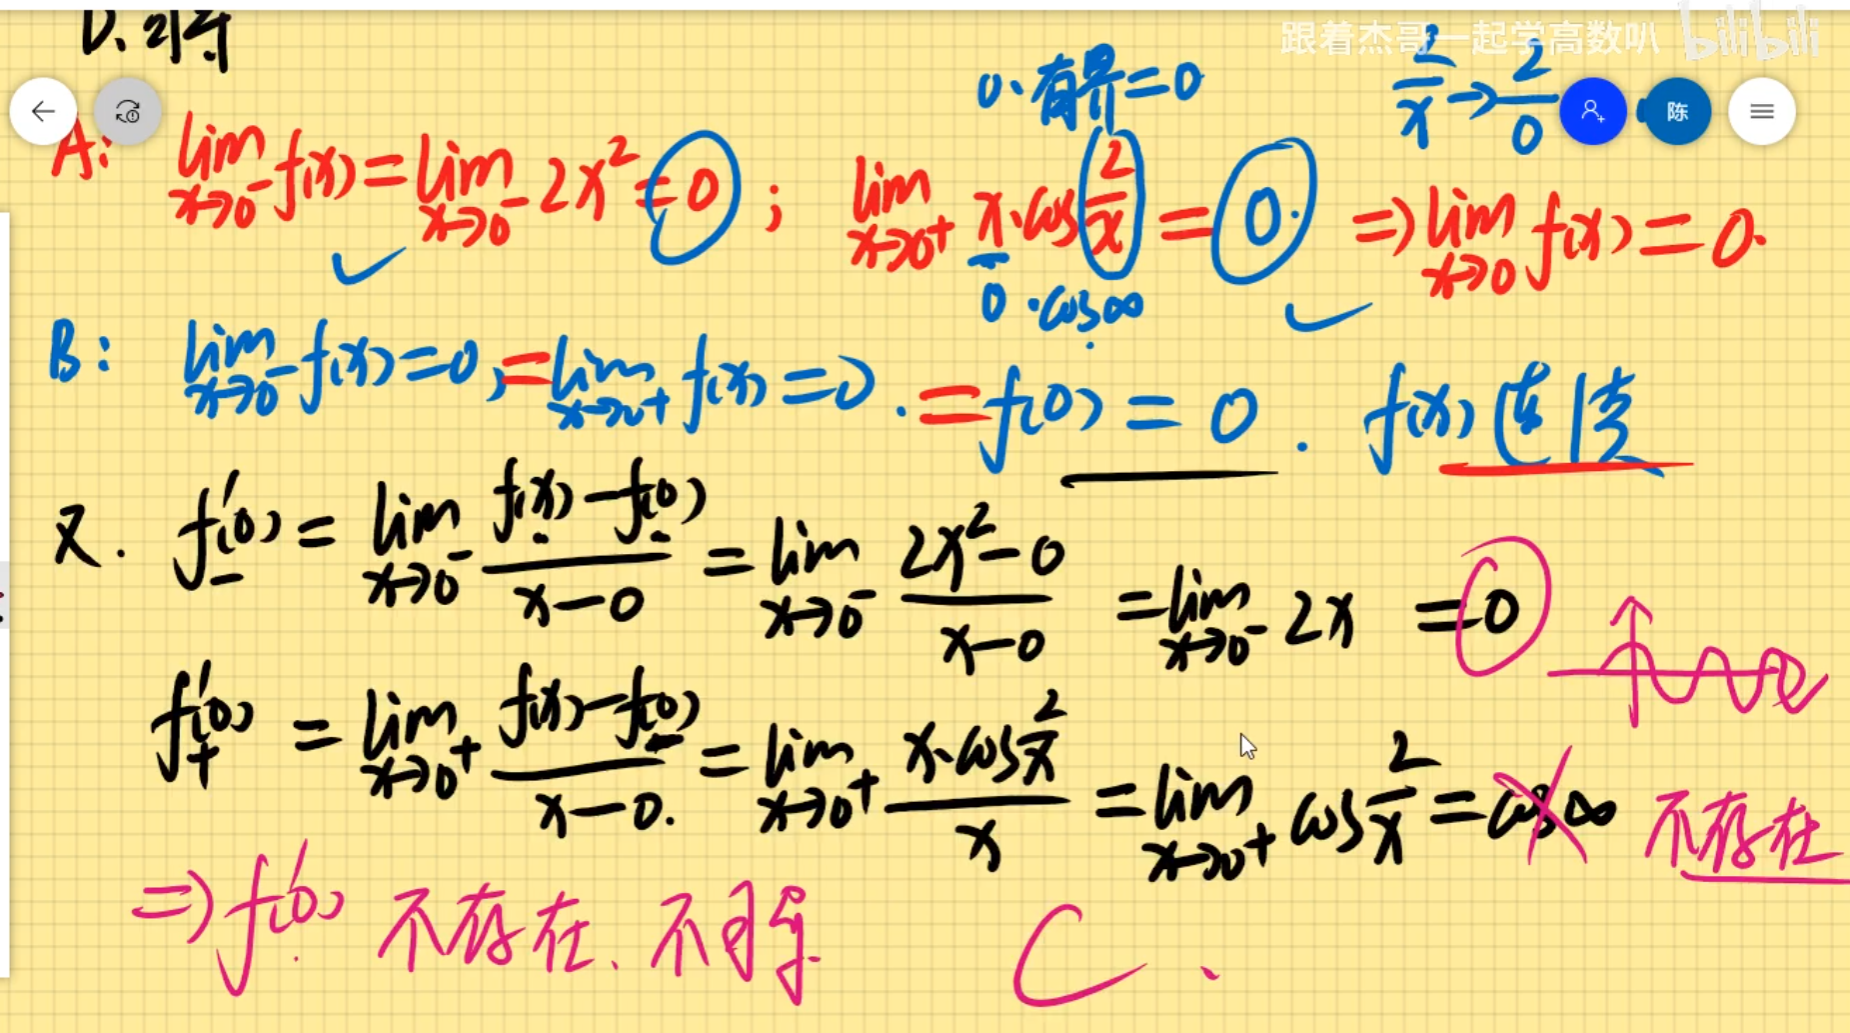 D、可导
跟着杰哥一起学高数叭 bilibili
0·有界=0
2/x→2/0
陈
A: lim x→0⁻ f(x)=lim x→0⁻ 2x²=0; lim x→0⁺ x·cos 2/x=0. ⇒lim x→0 f(x)=0.
0·cos∞
B: lim x→0⁻ f(x)=0,=lim x→0⁺ f(x)=0.=f(0)=0. f(x)连续
又. f′₋(0)=lim x→0⁻ f(x)-f(0)/x-0=lim x→0⁻ 2x²-0/x-0=lim x→0⁻ 2x=0
f′₊(0)=lim x→0⁺ f(x)-f(0)/x-0.=lim x→0⁺ x·cos 2/x/x=lim x→0⁺ cos 2/x=cos∞ 不存在
⇒f′(0) 不存在、不可导. C、